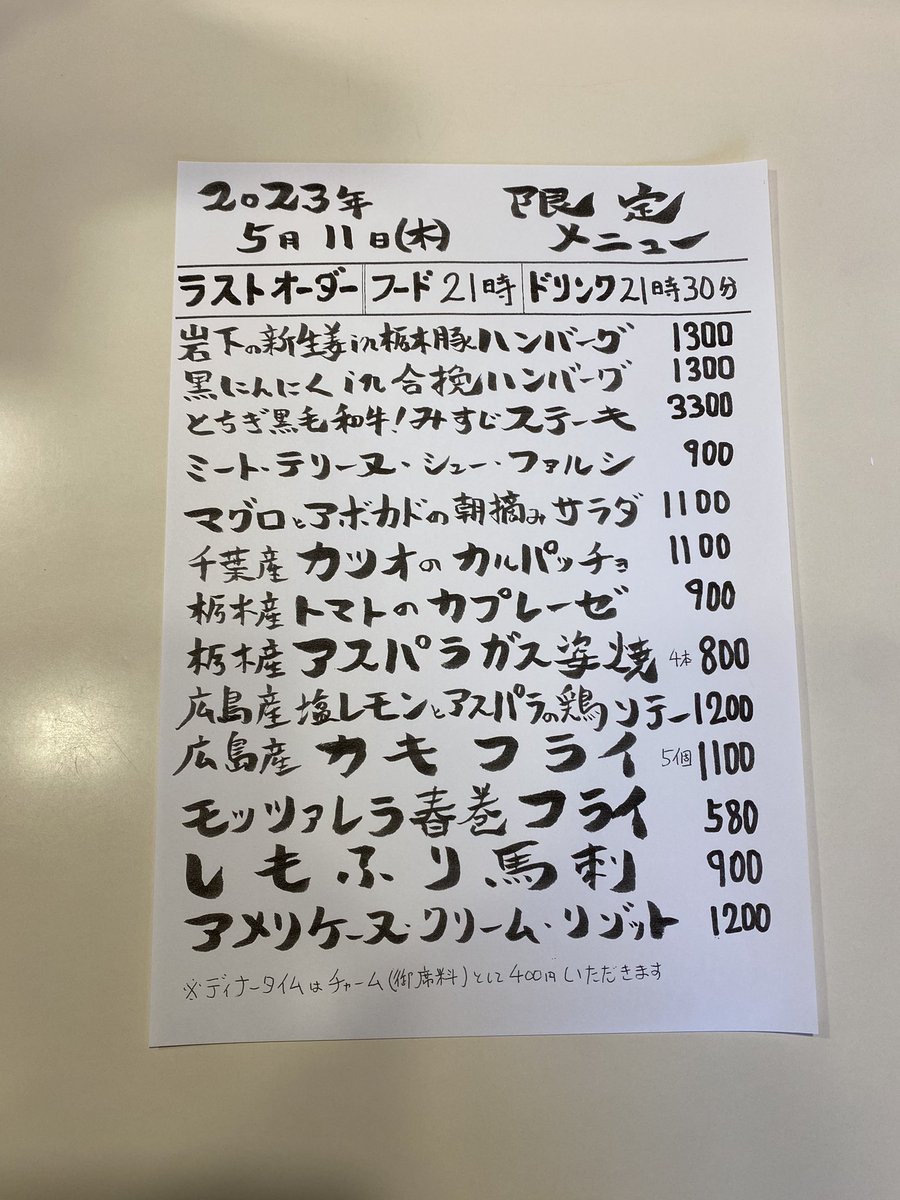 2023年 限定
5月11日(木) メニュー
ラストオーダー フード21時 ドリンク21時30分
岩下の新生姜in栃木豚ハンバーグ 1300
黒にんにくin合挽ハンバーグ 1300
とちぎ黒毛和牛!みすじステーキ 3300
ミート・テリーヌ・シュー・ファルシ 900
マグロとアボカドの朝摘みサラダ 1100
千葉産 カツオのカルパッチョ 1100
栃木産 トマトのカプレーゼ 900
栃木産 アスパラガス姿焼 4本 800
広島産 塩レモンとアスパラの鶏ソテー 1200
広島産 カキフライ 5個 1100
モッツァレラ春巻フライ 580
しもふり馬刺 900
アメリケーヌ・クリーム・リゾット 1200
※ディナータイムはチャーム(御席料)として400円いただきます